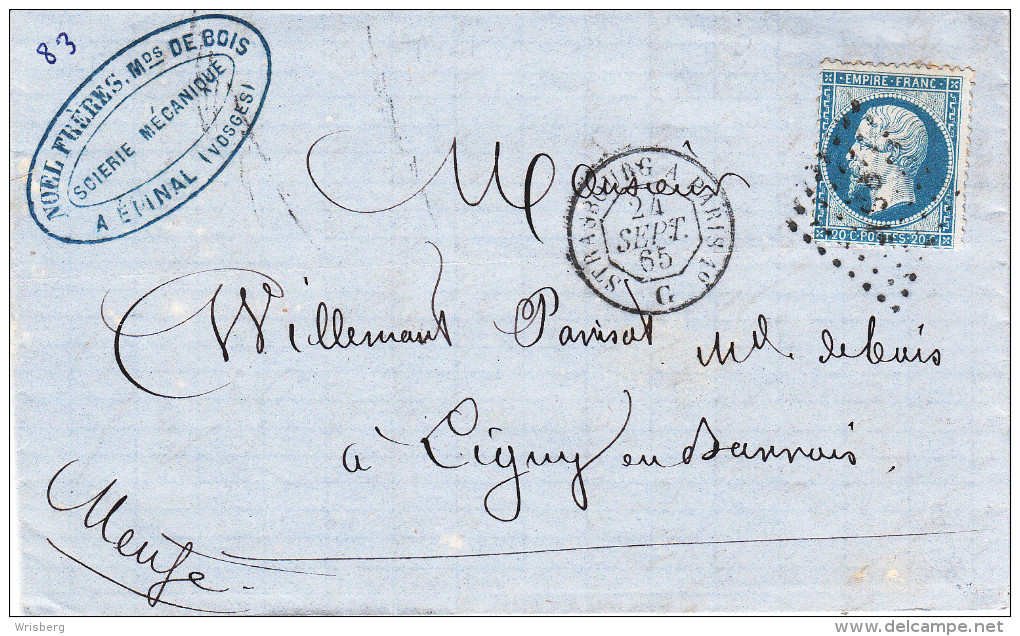 83
NOEL FRÈRES. Mds DE BOIS
SCIERIE MÉCANIQUE
A ÉPINAL (VOSGES)
EMPIRE FRANC
20 C POSTES 20
STRASBOURG A PARIS 1o
24
SEPT.
65
G
Monsieur
Willemart Parisot Md. de bois
à Ligny en Barrois.
Meuse.
Wrisberg
www.delcampe.net